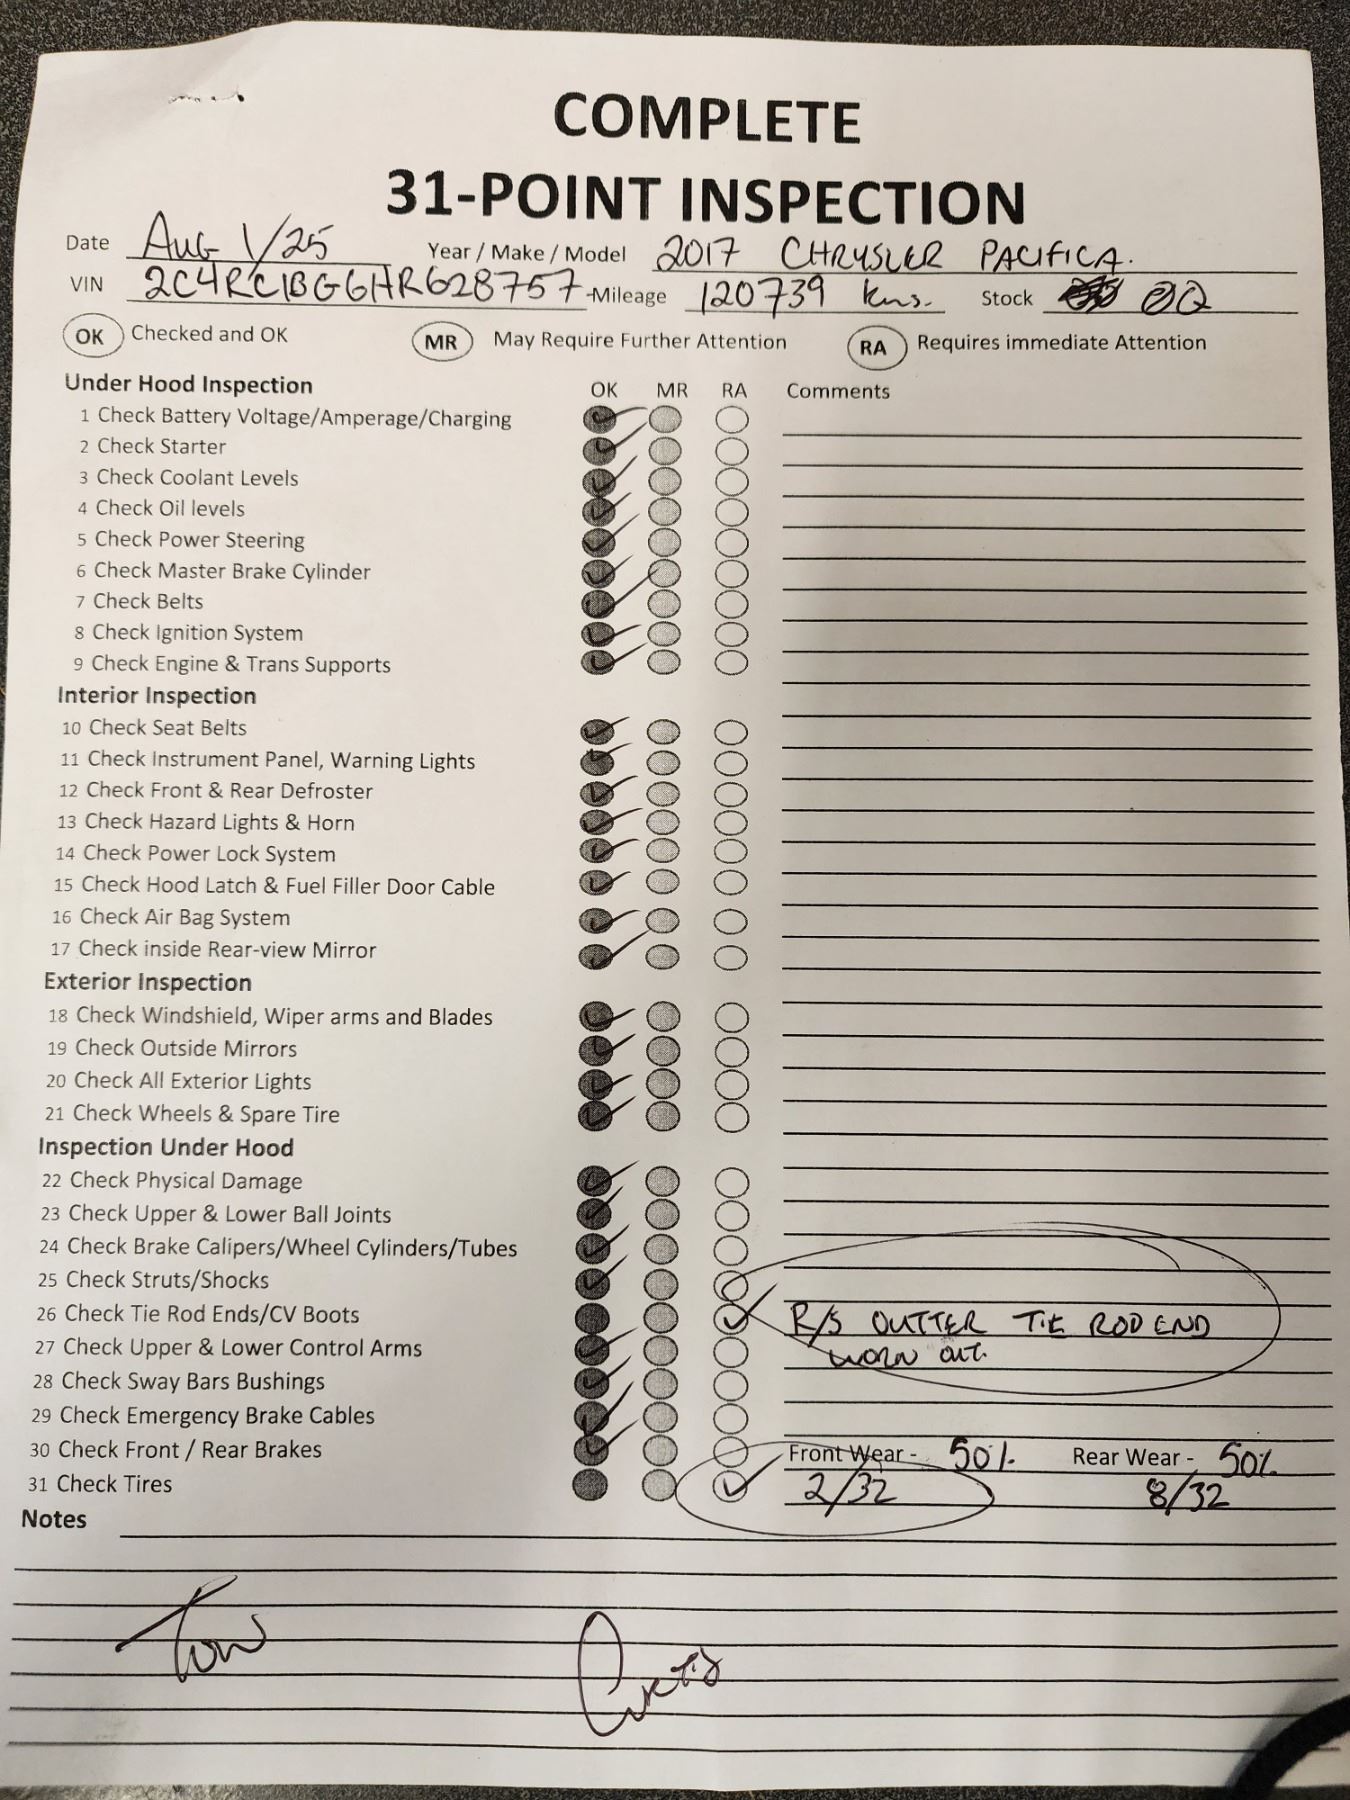 COMPLETE
31-POINT INSPECTION
Date Aug 1/25 Year / Make / Model 2017 CHRYSLER PACIFICA.
VIN 2C4RC1BG6HR628757 Mileage 120739 kms. Stock
OK Checked and OK MR May Require Further Attention RA Requires immediate Attention
Under Hood Inspection OK MR RA Comments
1 Check Battery Voltage/Amperage/Charging
2 Check Starter
3 Check Coolant Levels
4 Check Oil levels
5 Check Power Steering
6 Check Master Brake Cylinder
7 Check Belts
8 Check Ignition System
9 Check Engine & Trans Supports
Interior Inspection
10 Check Seat Belts
11 Check Instrument Panel, Warning Lights
12 Check Front & Rear Defroster
13 Check Hazard Lights & Horn
14 Check Power Lock System
15 Check Hood Latch & Fuel Filler Door Cable
16 Check Air Bag System
17 Check inside Rear-view Mirror
Exterior Inspection
18 Check Windshield, Wiper arms and Blades
19 Check Outside Mirrors
20 Check All Exterior Lights
21 Check Wheels & Spare Tire
Inspection Under Hood
22 Check Physical Damage
23 Check Upper & Lower Ball Joints
24 Check Brake Calipers/Wheel Cylinders/Tubes
25 Check Struts/Shocks
26 Check Tie Rod Ends/CV Boots R/S OUTTER TIE ROD END
WORN OUT.
27 Check Upper & Lower Control Arms
28 Check Sway Bars Bushings
29 Check Emergency Brake Cables
30 Check Front / Rear Brakes Front Wear - 50% Rear Wear - 50%
31 Check Tires 2/32 8/32
Notes
Curtis